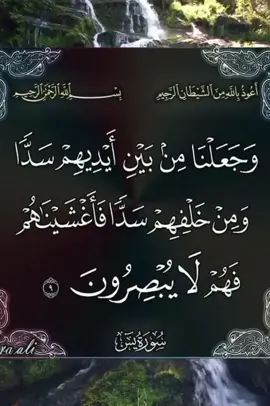 أعوذ بالله من الشيطان الرجيم
بسم الله الرحمن الرحيم
وَجَعَلْنَا مِنْ بَيْنِ أَيْدِيهِمْ سَدًّا
وَمِنْ خَلْفِهِمْ سَدًّا فَأَغْشَيْنَاهُمْ
فَهُمْ لَا يُبْصِرُونَ ٩
سورة يس
ra ali